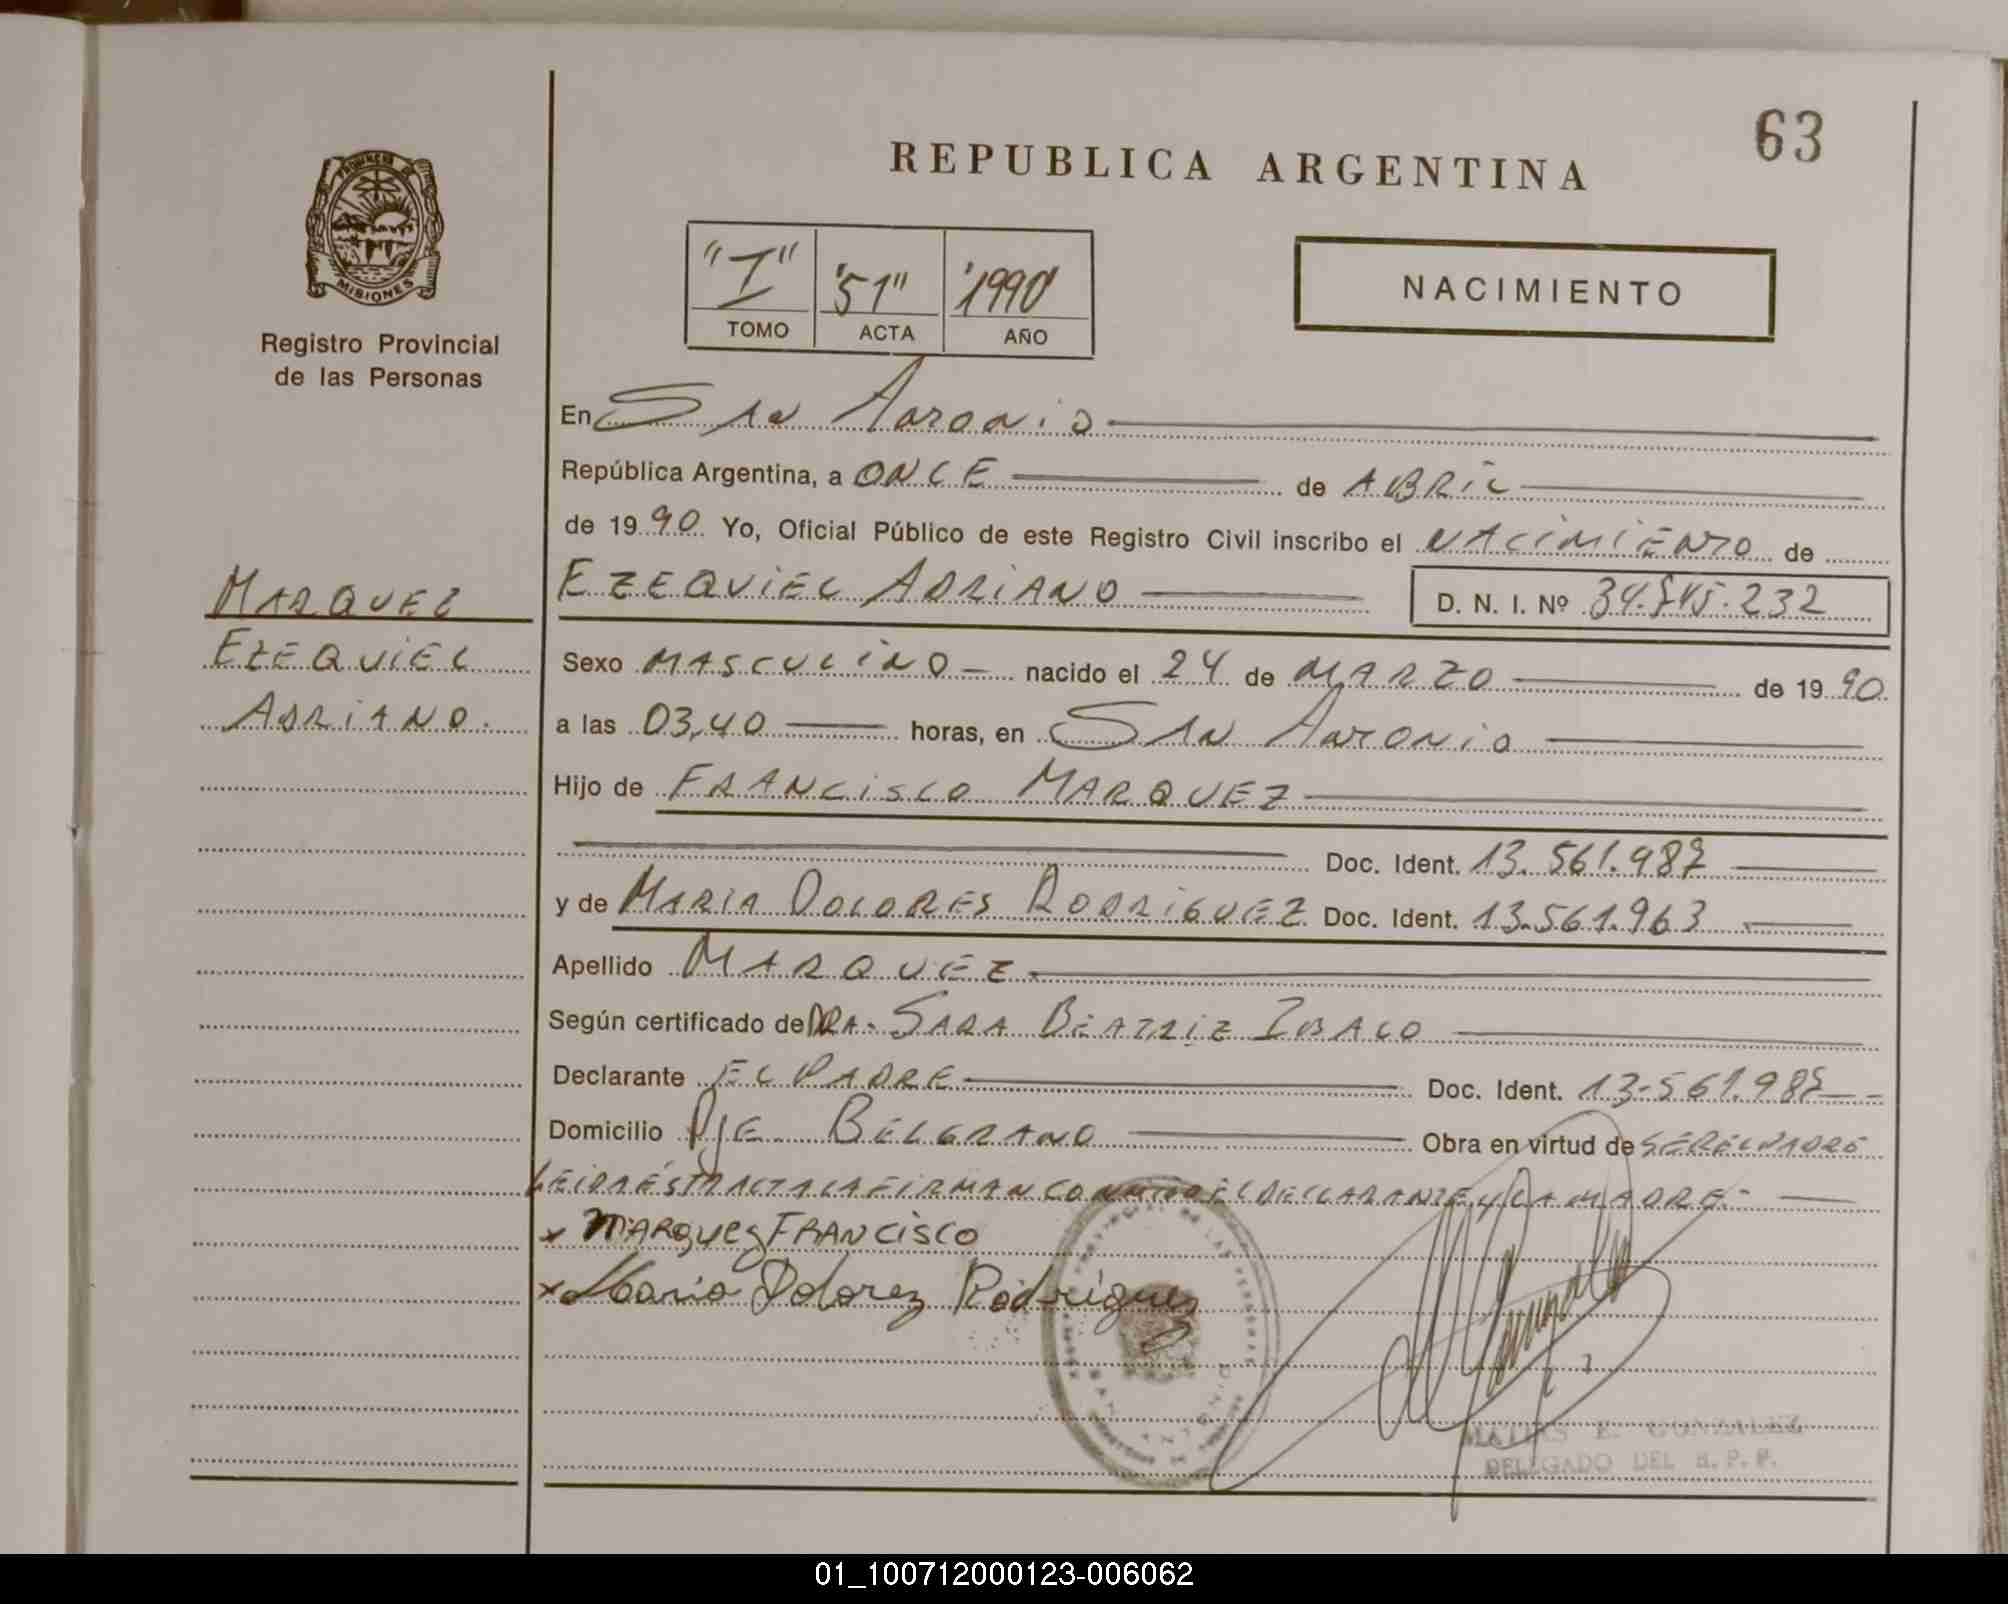 63
REPUBLICA ARGENTINA
PROVINCIA DE
MISIONES
Registro Provincial
de las Personas
"I" "51" "1990"
TOMO ACTA AÑO
NACIMIENTO
En San Antonio
República Argentina, a ONCE de ABRIL
de 1990. Yo, Oficial Público de este Registro Civil inscribo el NACIMIENTO de
MARQUEZ
EZEQUIEL
ADRIANO.
EZEQUIEL ADRIANO D. N. I. Nº
Sexo MASCULINO nacido el 24 de MARZO de 1990
a las 03,40 horas, en SAN ANTONIO
Hijo de FRANCISCO MARQUEZ
Doc. Ident. 13.561.987
y de MARIA DOLORES RODRIGUEZ Doc. Ident. 13.561.963
Apellido MARQUEZ
Según certificado de DRA. SARA BEATRIZ
Declarante EL PADRE Doc. Ident. 13.561.987
Domicilio PJE BELGRANO Obra en virtud de SER EL PADRE
LEIDA ÉSTA ACTA LA FIRMAN CONMIGO EL DECLARANTE Y LA MADRE.-
x MARQUEZ FRANCISCO
x Maria Dolorez Rodriguez
MATIAS E. GONZALEZ
DELEGADO DEL R. P. P.
01_100712000123-006062